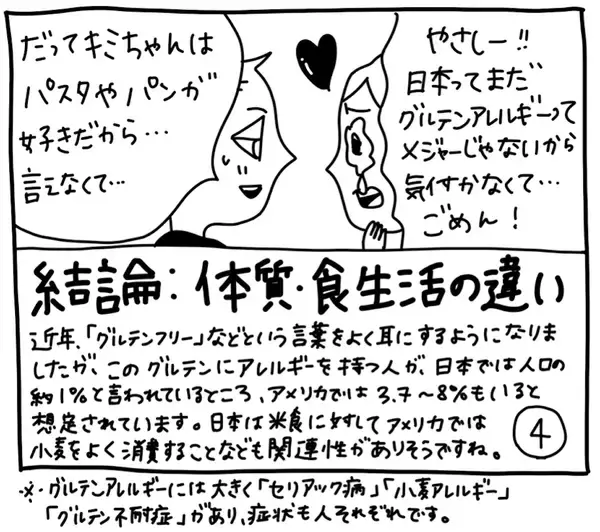 だってキミちゃんは
パスタやパンが
好きだから…
言えなくて…
やさしー!!
日本ってまだ
グルテンアレルギーって
メジャーじゃないから
気付かなくて…
ごめん!
結論:体質・食生活の違い
近年、「グルテンフリー」などという言葉をよく耳にするようになりま
したが、このグルテンにアレルギーを持つ人が、日本では人口の
約1%と言われているところ、アメリカでは3.7~8%もいると
想定されています。日本は米食に対してアメリカでは
小麦をよく消費することなども関連性がありそうですね。
4
※・グルテンアレルギーには大きく「セリアック病」「小麦アレルギー」
「グルテン不耐症」があり、症状も人それぞれです。